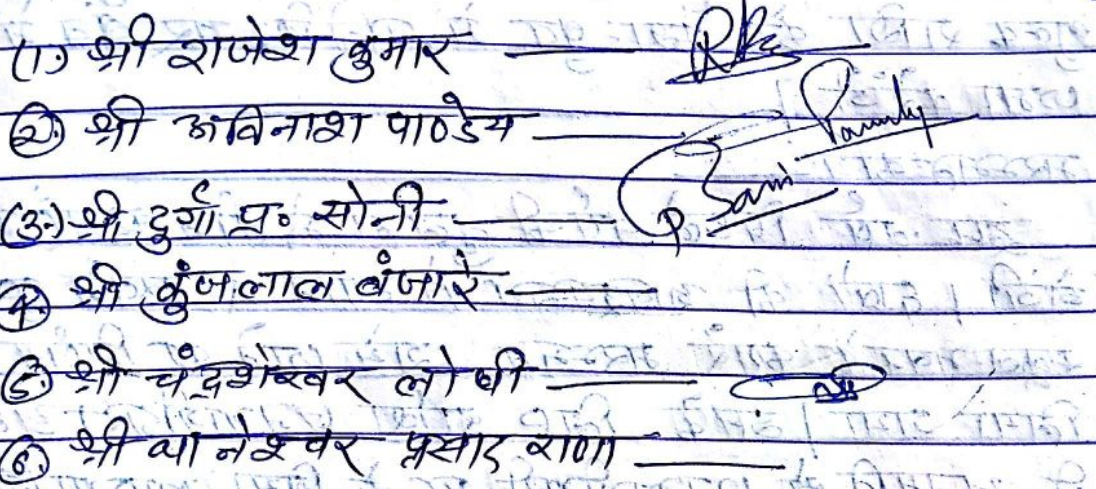 (1) श्री राजेश कुमार
(2) श्री अविनाश पाण्डेय
(3) श्री दुर्गा प्र. सोनी
(4) श्री कुंजलाल बंजारे
(5) श्री चंद्रशेखर लोधी
(6) श्री थानेश्वर प्रसाद राणा